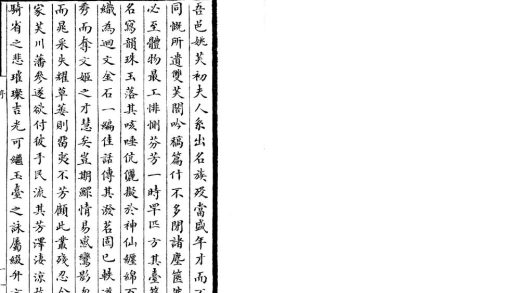 吾邑姚芙初夫人系出名族歿當盛年才而不
同慨所遺雙芙閣吟稿篇什不多閟諸塵篋
必至體物最工悱惻芬芳一時罕匹方其臺
名寫韻珠玉落其咳唾伉儷擬於神仙纏綿
織為迴文金石一編佳話傳其潑茗固已軼
秀而奪文姬之才慧矣豈期鰥情易感鸞影
而晁采失耀草萎則不芳顧此叢殘忍
家芙川藩參遂欲付彼手民流其芳澤淒涼
騎省之悲璀璨吉光可繼玉臺之詠屬綴弁